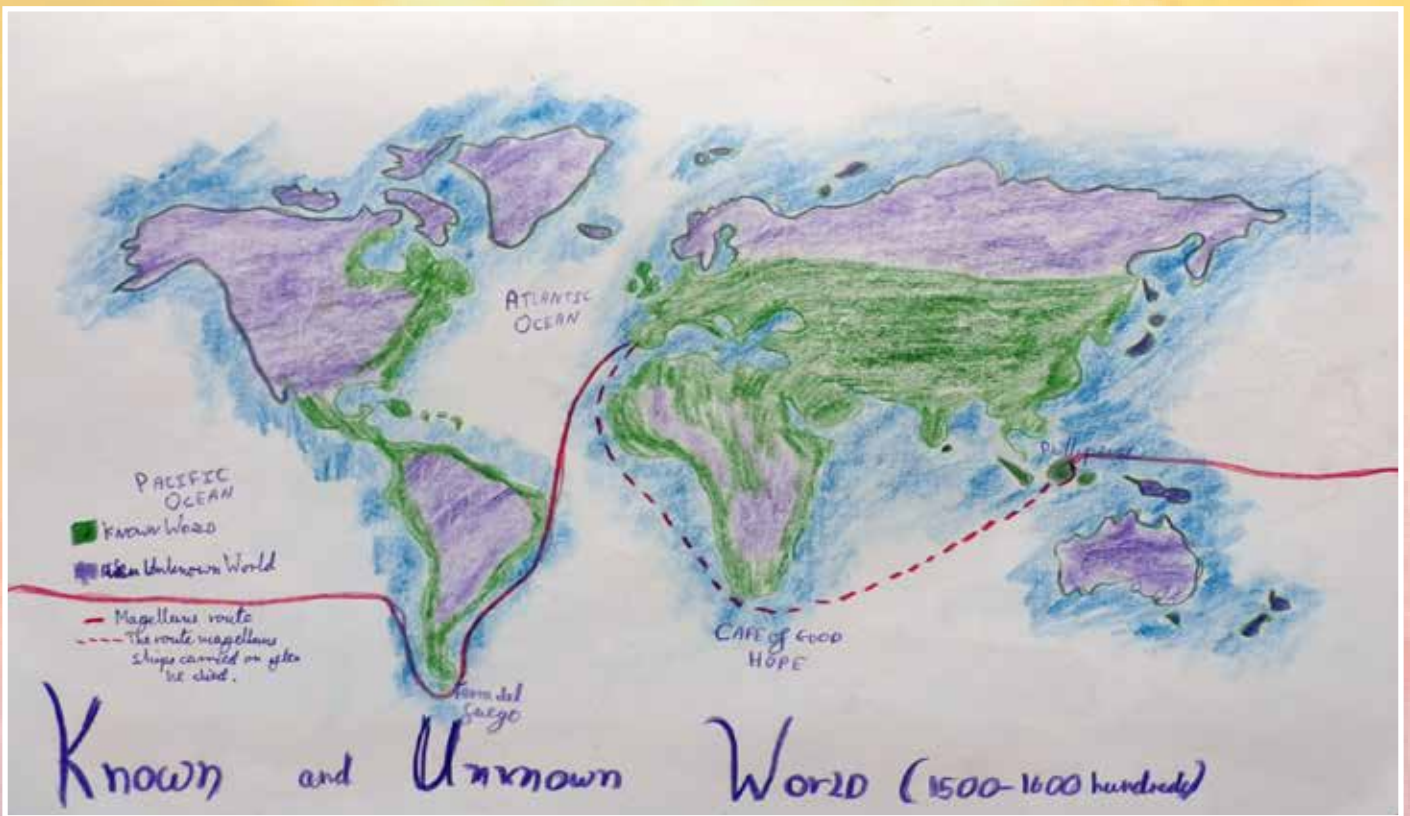 ATLANTIC
OCEAN
PACIFIC
OCEAN
KNOWN WORLD
Unknown World
Magellans route
The route magellans
ships carried on after
he died.
CAPE of GOOD
HOPE
Terra del
fuego
Known and Unknown World (1500-1600 hundreds)